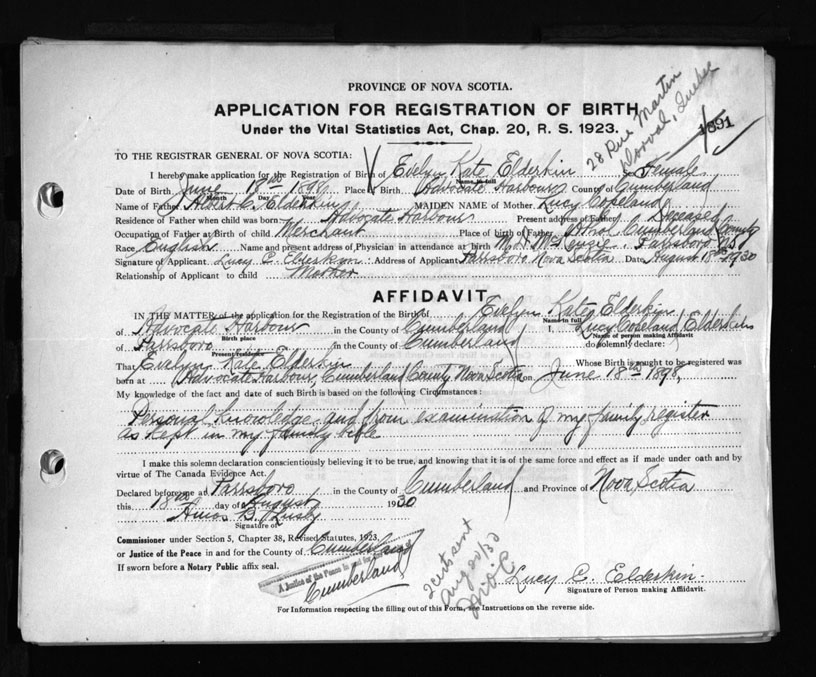 PROVINCE OF NOVA SCOTIA.
APPLICATION FOR REGISTRATION OF BIRTH
Under the Vital Statistics Act, Chap. 20, R. S. 1923.
28 Rue Martin
Dorval, Quebec
1891
TO THE REGISTRAR GENERAL OF NOVA SCOTIA:
I hereby make application for the Registration of Birth of Evelyn Kate Elderkin Female
Name in full
Date of Birth June 18th 1898 Place Birth Advocate Harbour County of Cumberland
Month Day Year
Name of Father Elderkin MAIDEN NAME of Mother Lucy Copeland
Residence of Father when child was born Advocate Harbour Present address of Father Deceased
Occupation of Father at Birth of child Merchant Place of birth of Father Athol Cumberland County
Race English Name and present address of Physician in attendance at birth Parrsboro NS
Signature of Applicant Lucy C. Elderkin Address of Applicant Parrsboro Nova Scotia Date August 18th 1930
Relationship of Applicant to child Mother
AFFIDAVIT
IN THE MATTER of the application for the Registration of the Birth of Evelyn Kate Elderkin
Name in full
of Advocate Harbour in the County of Cumberland I, Lucy Copeland Elderkin
Birth place Name of person making Affidavit
of Parrsboro in the County of Cumberland do solemnly declare:
Present residence
That Evelyn Kate Elderkin Whose Birth is sought to be registered was
born at Advocate Harbour, Cumberland County Nova Scotia on June 18th 1898,
My knowledge of the fact and date of such Birth is based on the following Circumstances:
Personal knowledge and from examination of my family register
as kept in my family bible
I make this solemn declaration conscientiously believing it to be true, and knowing that it is of the same force and effect as if made under oath and by
virtue of The Canada Evidence Act.
Declared before me at Parrsboro in the County of Cumberland and Province of Nova Scotia
this 18th day of August 1930
Amos B. Lusby
Signature of
Commissioner under Section 5, Chapter 38, Revised Statutes, 1923,
or Justice of the Peace in and for the County of Cumberland
If sworn before a Notary Public affix seal.
A Justice of the Peace in and for
Cumberland
sent
Aug 20/30
Lucy C. Elderkin
Signature of Person making Affidavit.
For Information respecting the filling out of this Form, see Instructions on the reverse side.